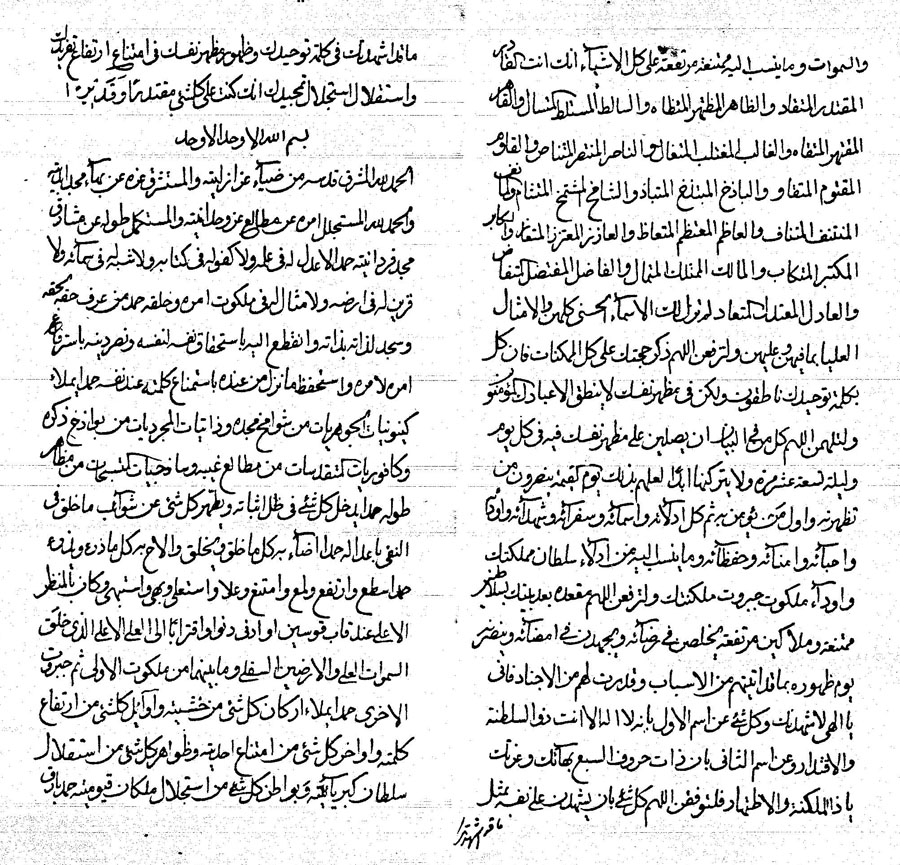 والسموات وما ينسب اليه ممتنعة مرتفعة على كل الاشياء انك انت كنت قادر
المقتدر المتقادر والظاهر المظهر المتظاهر والسالط المستلط المتسال والقاهر
المقتهر المتقاهر والغالب المغتلب المتغال والناصر المنتصر المتناصر والقاوم
المقتوم المتقاوم والباذخ المبتذخ المتباذ والشامخ المشتمخ المتشامخ
المنتنف المتناف والعاظم المعتظم المتعاظم والعازز المعتزز المتعازز والكابر
المكتبر المتكاب والمالك الممتلك المتمال والفاضل المفتضل المتفاض
والعادل المعتدل المتعاد لم تزل لك الاسماء الحسنى كلهن والامثال
العليا بما فيهن وعليهن ولترفعن اللهم ذكر حجتك على كل الممكنات فان كل
بكلمة توحيدك ناطقون ولكن في مظهر نفسك لا ينطق الا عبادك المؤمنون
ولتلهمن اللهم كل من في البيان ان يصلين على مظهر نفسك فيه في كل يوم
وليلة تسعة عشر مرة ولا يتركنها ابدا لعلهم بذلك يوم القيمة ينصرون من
تظهرنه واول من يؤمن به ثم كل ادلائه واسمائه وسفرائه وشهدائه
واحبائه وامنائه وحفظائه وما ينسب اليه من ادلاء سلطان مملكتك
واودائه ملكوت جبروت ملكتك ولترفعن اللهم مقعده بعد بيتك بسلاطين
ممتنعة وملاكين مرتفعة يخلصن في رضائه ويجهدن في امضائه وينصرن
يوم ظهوره بما قد اتيتهم من الاسباب وقدرت لهم من الاجناد فاني
يا الهي لاشهدنك وكل شئ عن اسم الاول بانه لا اله الا انت ذو السلطنة
والاقتدار وعن اسم الثاني بان ذات حروف السبع بهائك وعزتك
يا ذا الملكنة والاظتهار فلتوفقن اللهم كل شئ بان يشهدن على نفسه بمثل
ما قد اشهدتك في كلمة توحيدك وظهور مظهر نفسك في امتناع ارتفاع تفريدك
واستقلال استجلال تمجيدك انك كنت على كل شئ مقتدرا وقديرا
بسم الله الاوحد الاوحد
الحمد لله المشرق قدسه من ضياء عز ازليته والمستشرق عزه عن بهاء مجد ابديته
والحمد لله المستجلل امره عن مطالع عز وحدانيته والمستكمل طوله عن مشارق
مجد فردانيته حمدا لا عدل له في علمه ولا كفو له في كتابه ولا شبه له في سمائه ولا
قرين له في ارضه ولا مثال له في ملكوت امره وخلقه حمد من عرف حقه بحقه
وسجد لذاته بذاته وانقطع اليه باستحقاق نفسه لنفسه ونصر دينه باسترفاع
امره لامره واستحفظ ما نزل من عنده باستمناع كلمته عند نفسه حمدا يملاء
كينونيات الجوهريات من شوامخ مجده وذاتيات المجرديات من بواذخ ذكره
وكافوريات المتقدسات من مطالع غيبه وساذجيات المتسبحات من مظاهر
طوله حمدا يدخل كل شئ في ظل اثباته ويطهر كل شئ عن شوائب ما خلق في
النفي باعداله حمدا اضاء به كل ما خلق ويخلق والاح به كل ما ذرء ويذرء
حمدا سطع وارتفع ولمع وامتنع وعلا واستعلى وبهى واستبهى وكان بالمنظر
الاعلى عند قاب قوسين او ادنى دنوا واقترابا الى العلى الاعلى الذي خلق
السموات العلى والارضين السفلى وما بينهما من ملكوت الاولى ثم جبروت
الاخرى حمدا يملاء اركان كل شئ من خشيته واوايل كل شئ من ارتفاع
كلمته واواخر كل شئ من امتناع احديته وظواهر كل شئ من استقلال
سلطان كبريائيته وبواطن كل شئ من استجلال ملكان قيوميته حمدا